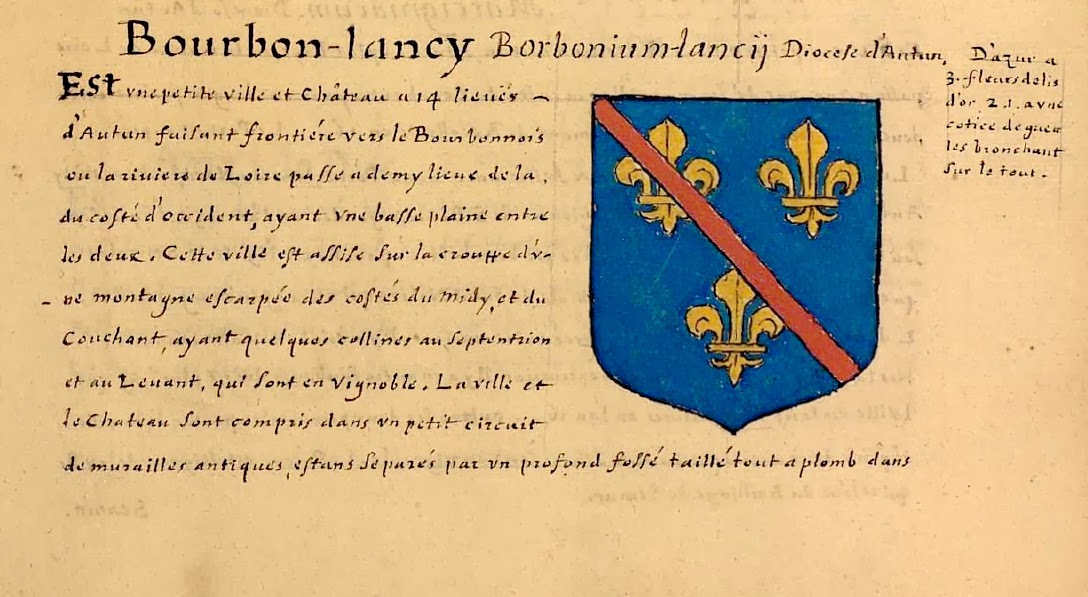 Bourbon-lancy Borbonium-lancij Diocese d'Autun,
Est vne petite ville et Château a 14 lieües
d'Autun faisant frontiére vers le Bourbonnois
ou la riviere de Loire passe a demy lieue de la,
du costé d'occident, ayant vne basse plaine entre
les deux. Cette ville est assise sur la crouppe d'v-
ne montagne escarpée des costés du Midy, et du
Couchant, ayant quelques collines au septentrion
et au Levant, qui sont en vignoble. La ville et
le Chateau sont compris dans vn petit circuit
de murailles antiques, estans separés par vn profond fossé taillé tout a plomb dans
D'azur a
3. fleurs de lis
d'or 2.1. a vne
cotice de gueu
les bronchant
sur le tout.